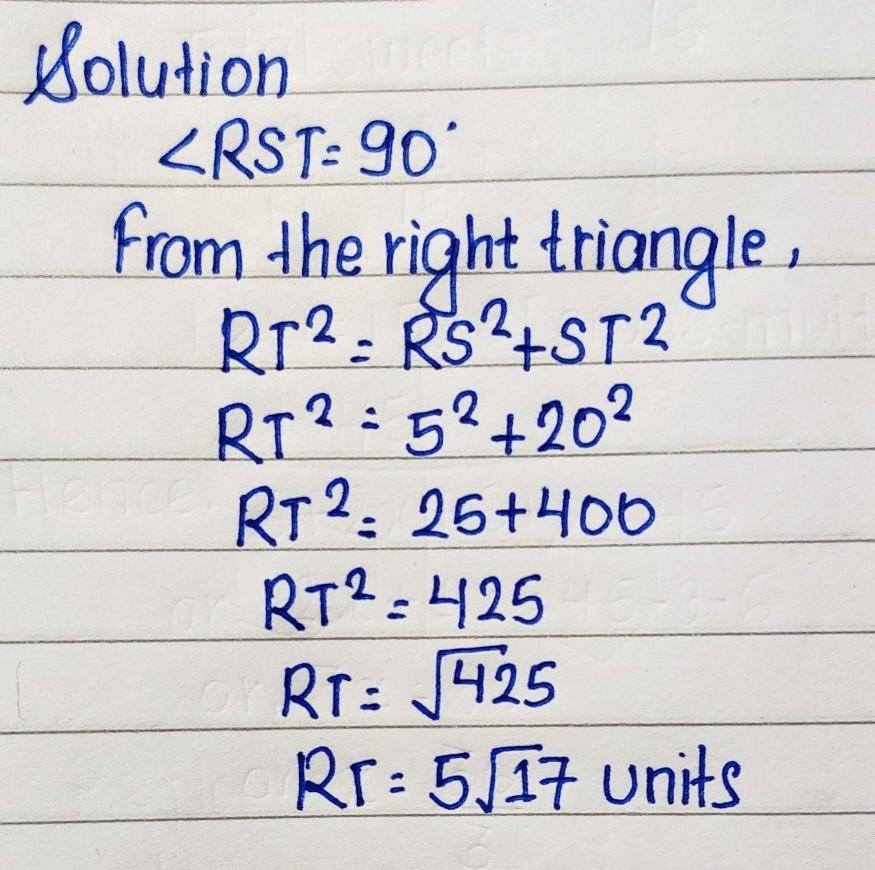 Solution
<RST=90°
From the right triangle,
RT²=RS²+ST²
RT²=5²+20²
RT²=25+400
RT²=425
RT=√425
RT=5√17 units